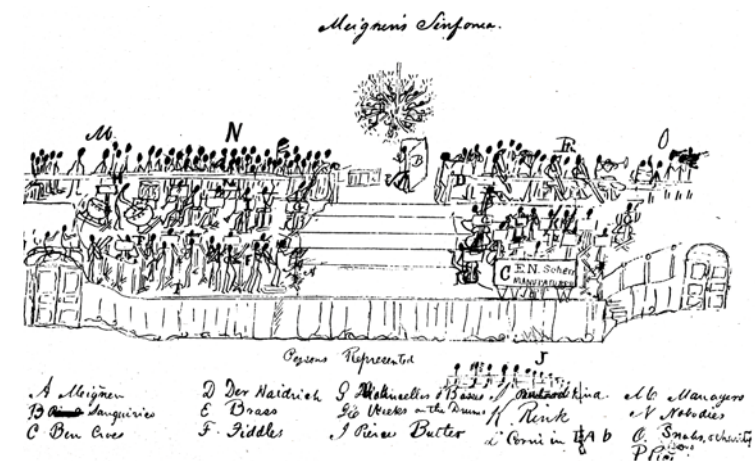 Meignen's Sinfonia.
M.
N
R
O
C E.N. Scherr
MANUFACTURER
Persons Represented
J
A Meignen
B Sanquirico
C Ben Cross
D Der Haidrich
E Brass
F. Fiddles
G Violincellos & Basses
Geo on the Drums
I Pierce Butler
K Rink
L Corni in E A b
M Managers
N Nobodies
O. Snobs,
P